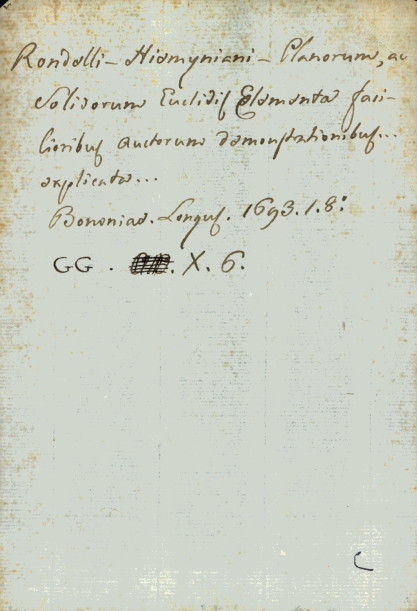 Rondelli - Hiemyniani - Planorum, ac
Solidorum Euclidis Elementa faci-
lioribus auctorum demonstrationibus...
explicata...
Bononiae. Longus. 1693. 1. 8:
GG. X. 6.